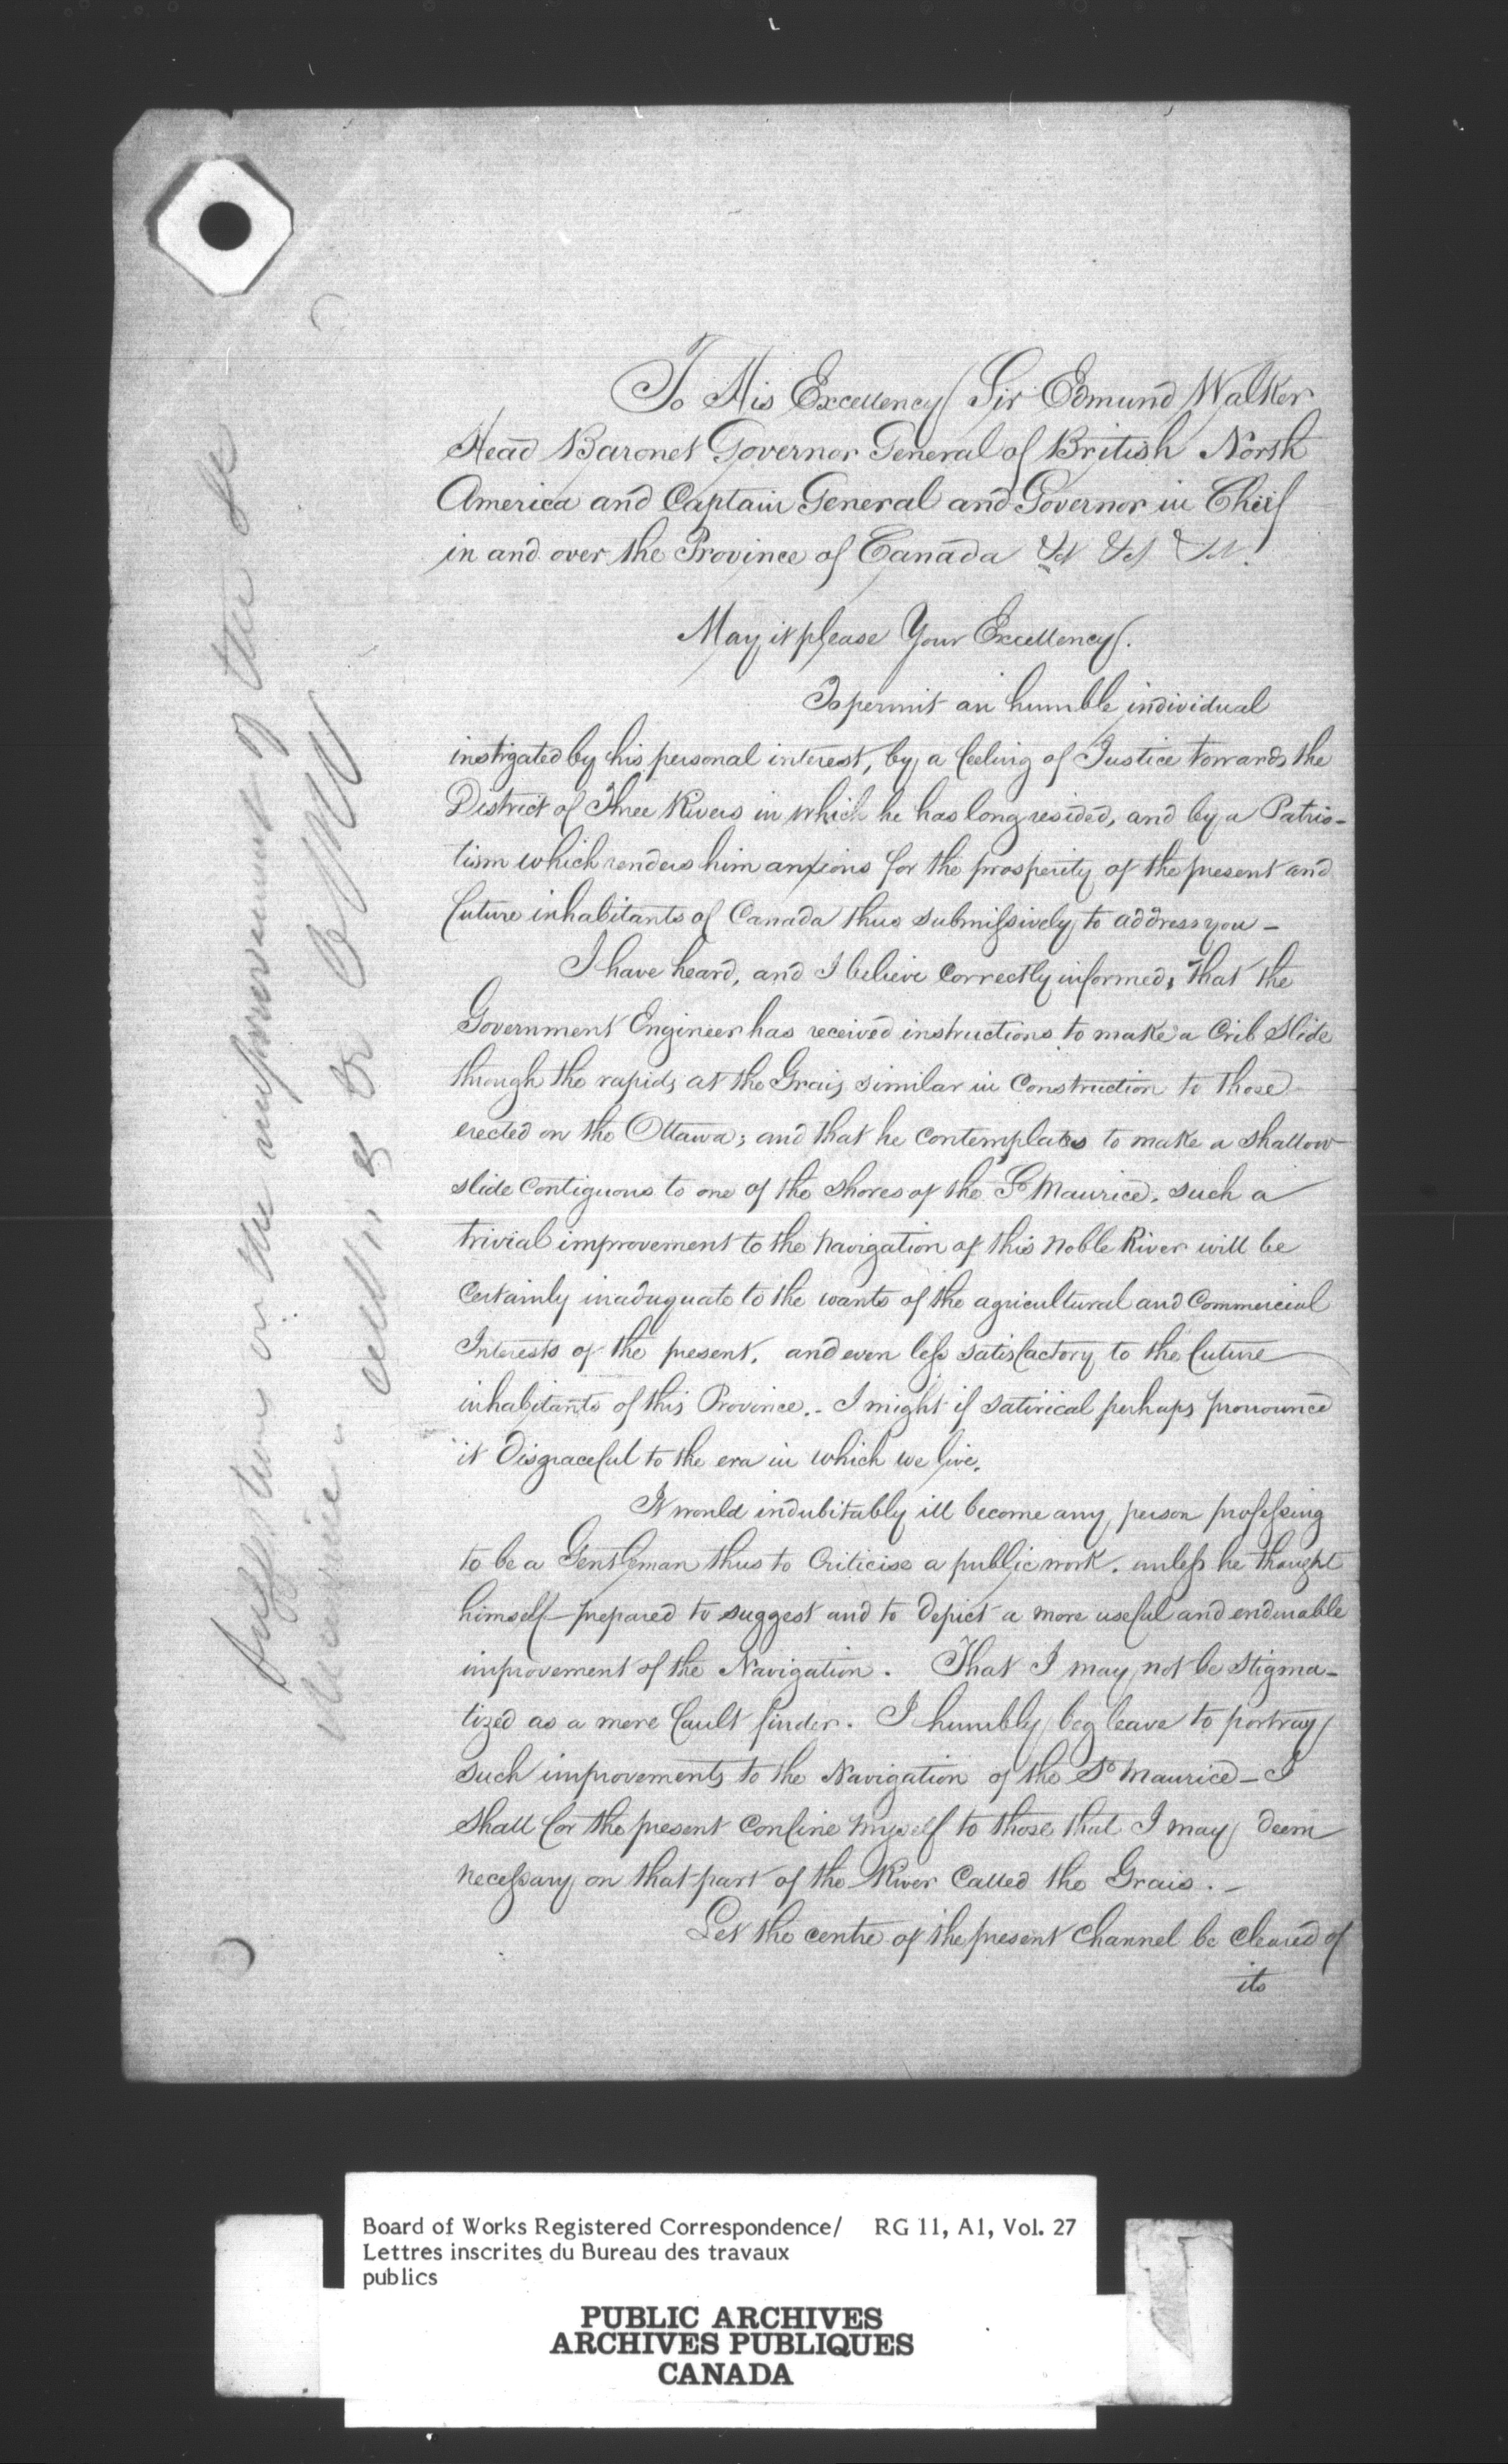 To His Excellency Sir Edmund Walker
Head Baronet Governor General of British North
America and Captain General and Governor in Chief
in and over the Province of Canada &c &c &c.
May it please Your Excellency.
To permit an humble individual
instigated by his personal interest, by a feeling of Justice towards the
District of Three Rivers in which he has long resided, and by a Patrio-
tism which renders him anxious for the prosperity of the present and
future inhabitants of Canada thus submissively to address you -
I have heard, and I believe correctly informed, that the
Government Engineer has received instructions to make a Crib Slide
through the rapids at the Grais similar in Construction to those
erected on the Ottawa; and that he contemplates to make a shallow
slide contiguous to one of the shores of the St Maurice. such a
trivial improvement to the Navigation of this Noble River will be
Certainly inadequate to the wants of the agricultural and Commercial
Interests of the present, and even less satisfactory to the future
inhabitants of this Province. - I might if satirical perhaps pronounce
it Disgraceful to the era in which we live.
It would indubitably ill become any person professing
to be a Gentleman thus to Criticise a public work. unless he thought
himself prepared to suggest and to depict a more useful and endurable
improvement of the Navigation. That I may not be Stigma-
tized as a mere fault finder. I humbly beg leave to portray
such improvements to the Navigation of the St Maurice - I
shall for the present Confine myself to those that I may deem
necessary on that part of the River Called the Grais. -
Let the centre of the present Channel be cleared of
its
on the improvement of the St
Maurice
Board of Works Registered Correspondence/ RG 11, A1, Vol. 27
Lettres inscrites du Bureau des travaux
publics
PUBLIC ARCHIVES
ARCHIVES PUBLIQUES
CANADA